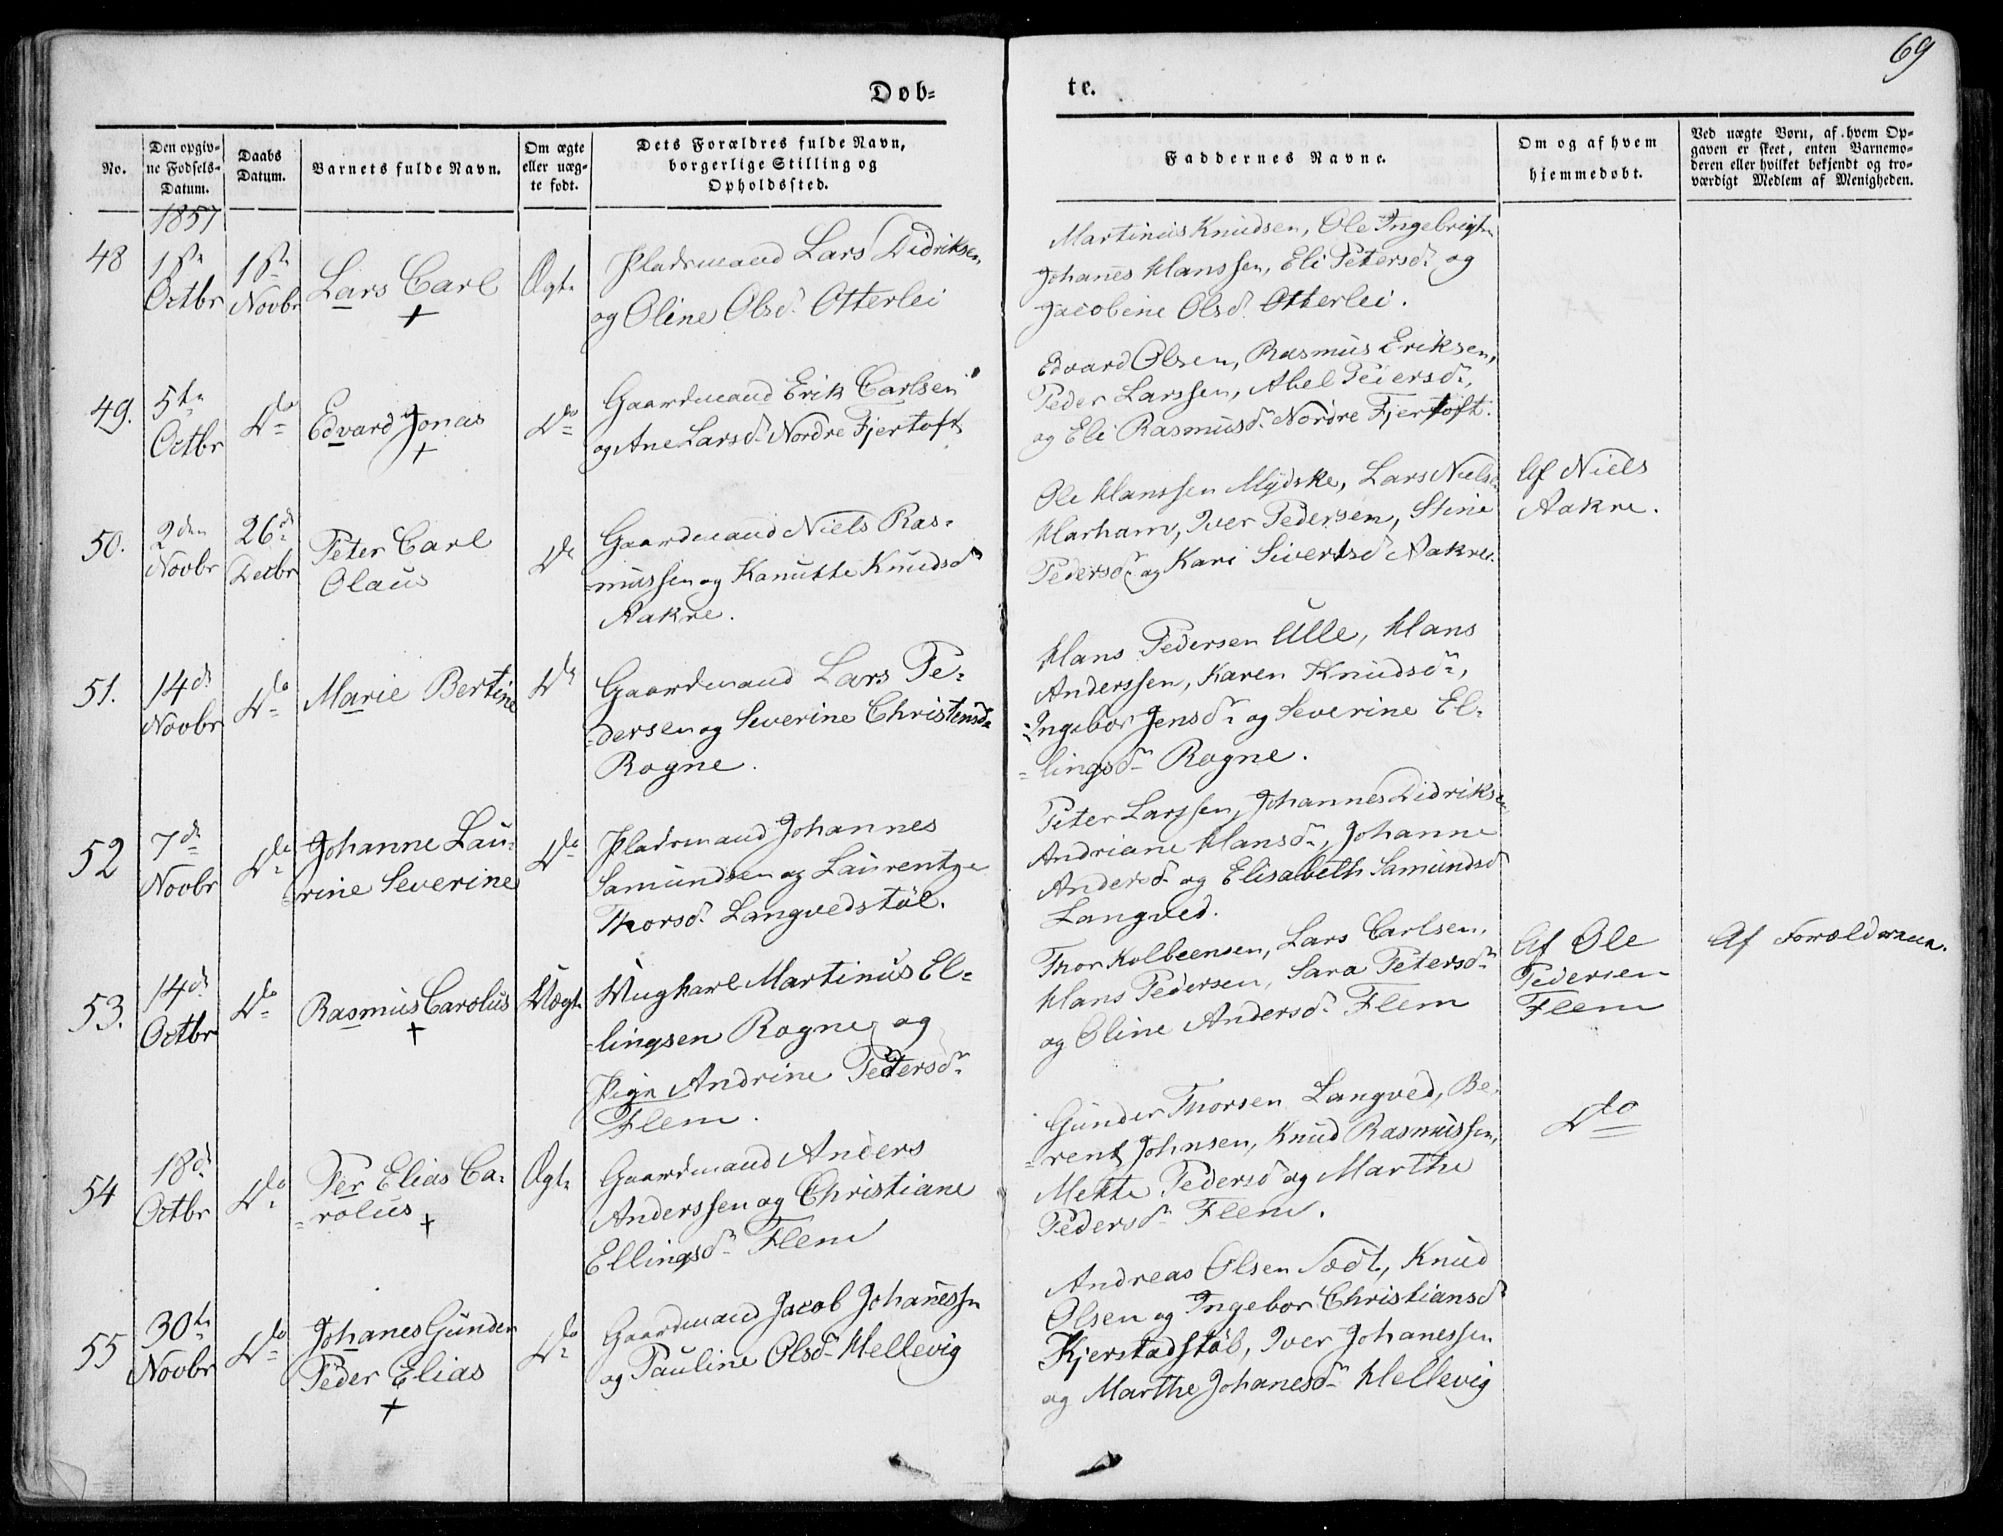 69
Døb-
te.
No.
Den opgiv-
ne Fødsels-
Datum.
Daabs
Datum.
Barnets fulde Navn.
Om ægte
eller uæg-
te født.
Dets Forældres fulde Navn,
borgerlige Stilling og
Opholdssted.
Faddernes Navne.
Om og af hvem
hjemmedøbt.
Ved uægte Børn, af hvem Op-
gaven er skeet, enten Barnemo-
deren eller hvilket bekjendt og tro-
værdigt Medlem af Menigheden.
1857
48
1ste
Octbr
1ste
Novbr
Lars Carl
+
Ægte
Pladsmand Lars Didriksen
og Oline Olsd. Otterlei
Martinus Knudsen, Ole Ingebrigts.
Johanes Hanssen, Eli Petersdr og
Jacobine Olsd. Otterlei.
49.
5te
Octbr
Do
Edvard Jonas
+
Do
Gaardmand Erik Carlsen
og Ane Larsdr Nordre Fjertoft
Edvard Olsen, Rasmus Eriksen,
Peder Larssen, Abel Peiersdr,
og Eli Rasmusdr Nordre Fjertoft.
50.
2den
Novbr
26de
Decbr
Peter Carl
Olaus
Do
Gaardmand Niels Ras-
-mussen og Kanutte Knudsdr
Aakre.
Ole Hanssen Mydske, Lars Niels.
Harham, Iver Pedersen, Stine
Pedersdr og Kari Sivertsdr Aakre.
Af Niels
Aakre.
51.
14de
Novbr
Do
Marie Bertine
Do
Gaardmand Lars Pe-
-dersen og Severine Christensdr
Rogne.
Hans Pedersen Ulle, Hans
Anderssen, Karen Knudsdr,
-Ingebor Jensdr og Severine El-
-lingsdr Rogne.
52
7de
Novbr
Do
Johanne Lau-
-rine Severine
Do
Pladsmand Johannes
Samundsen og Laurentze
Thorsdr Langvedstøl.
Peter Larssen, Johannes Didriksen
Andriane Hansdr, Johanne
Andersdr og Elisabeth Samundsdr
Langved.
53.
14de
Octbr
Do
Rasmus Carolus
+
Uægte
Ungkarl Martinus El-
-lingsen Rogne og
Pige Andrine Petersdr
Flem.
Thor Kolbeensen, Lars Carlsen,
Hans Pedersen, Sara Petersdr
og Oline Andersdr Flem
Af Ole
Pedersen
Flem
Af Forældrene.
54
18de
Octbr
Do
Per Elias Ca-
-rolus
+
Ægte
Gaardmand Anders
Anderssen og Christiane
Ellingsdr Flem
Gunder Thorsen Langved, Be-
-rent Johnsen, Knud Rasmussen,
Mette Pedersdr og Marthe
Pedersdr Flem.
Do
55
30te
Novbr
Do
Johanes Gunder
Peder Elias
+
Do
Gaardmand Jacob Johanessen
og Pauline Olsdr Hellevig
Andreas Olsen Sædt, Knud
Olsen og Ingebor Christiansdr
Kjerstadstøl, Iver Johanessen
og Marthe Johanesdr Hellevig